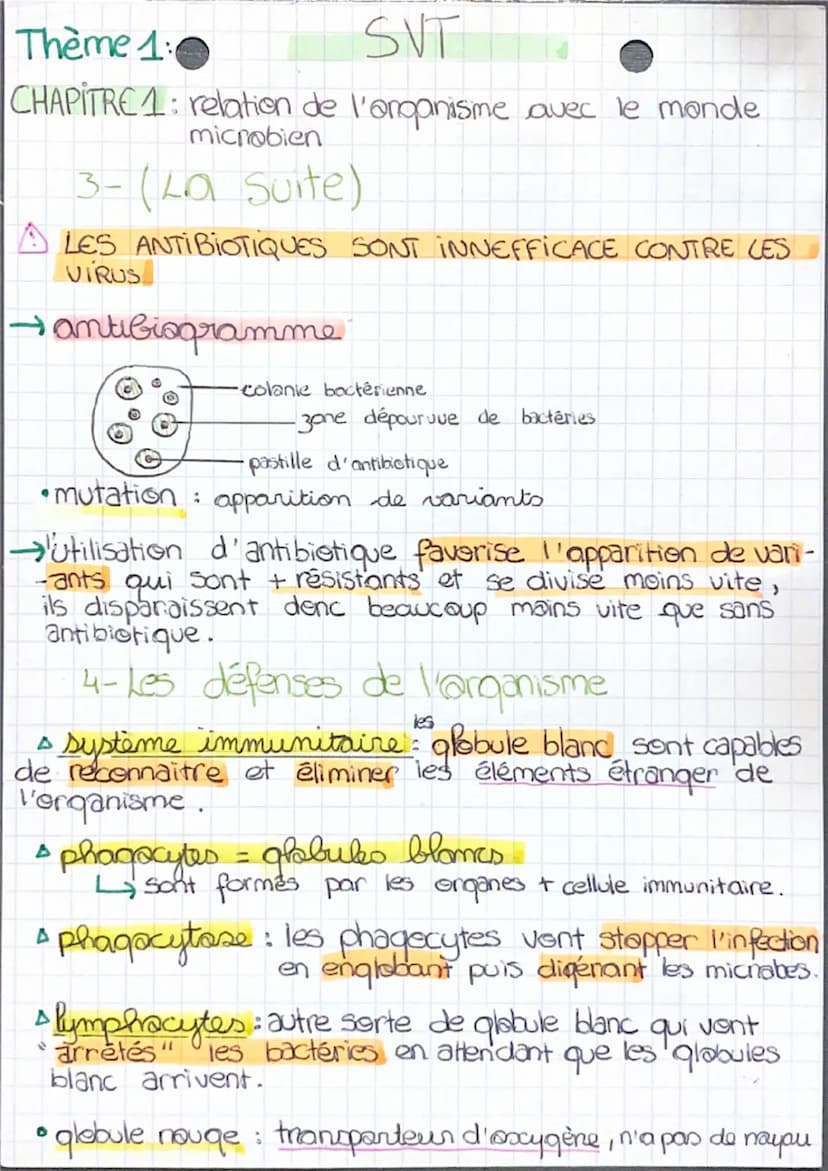 Thème 1:
SVT
CHAPITRE 1 : relation de l'organisme avec le monde
microbien
3- (La suite)
⚠ LES ANTIBIOTIQUES SONT INNEFFICACE CONTRE LES
VIRUS
→ antibiogramme
colonie bactérienne
zone dépourvue de bactéries
pastille d'antibiotique
• mutation : apparition de variants
→ l'utilisation d'antibiotique favorise l'apparition de vari-
-ants qui sont + résistants et se divise moins vite,
ils disparaissent donc beaucoup moins vite que sans
antibiotique.
4- Les défenses de l'organisme
les
△ système immunitaire : globule blanc sont capables
de reconnaitre et éliminer les éléments étranger de
l'organisme.
△ phagocytes = globules blancs
↳ sont formés par les organes + cellule immunitaire.
△ phagocytose : les phagocytes vont stopper l'infection
en englobant puis digérant les microbes.
△ lymphocytes : autre sorte de globule blanc qui vont
"arrêtés" les bactéries en attendant que les globules
blanc arrivent.
• globule rouge : transporteur d'oxygène, n'a pas de noyau